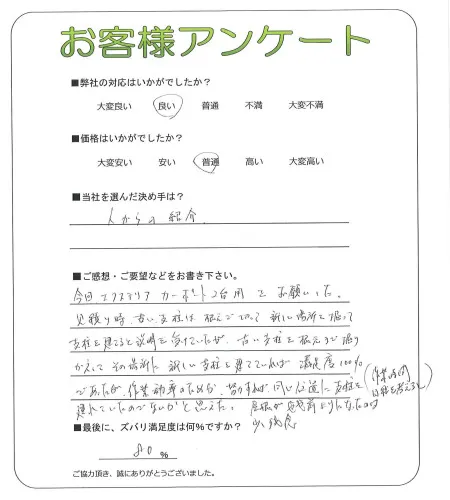 お客様アンケート
■弊社の対応はいかがでしたか？
大変良い 良い 普通 不満 大変不満
■価格はいかがでしたか？
大変安い 安い 普通 高い 大変高い
■当社を選んだ決め手は？
人からの紹介
■ご感想・ご要望などをお書き下さい。
今回エクステリア カーポート2台用をお願いした。
見積り時、古い支柱は根元で切って 新しい場所を掘って
支柱を建てると説明を受けていたが、古い支柱を根元まで掘り
かえして その場所に新しい支柱を建てていれば 満足度100%
であったが、作業効率のためか、 同じ位置に支柱を
建れていたのでないかと思えた。
少々残念
■最後に、ズバリ満足度は何％ですか？
80 %
ご協力頂き、誠にありがとうございました。